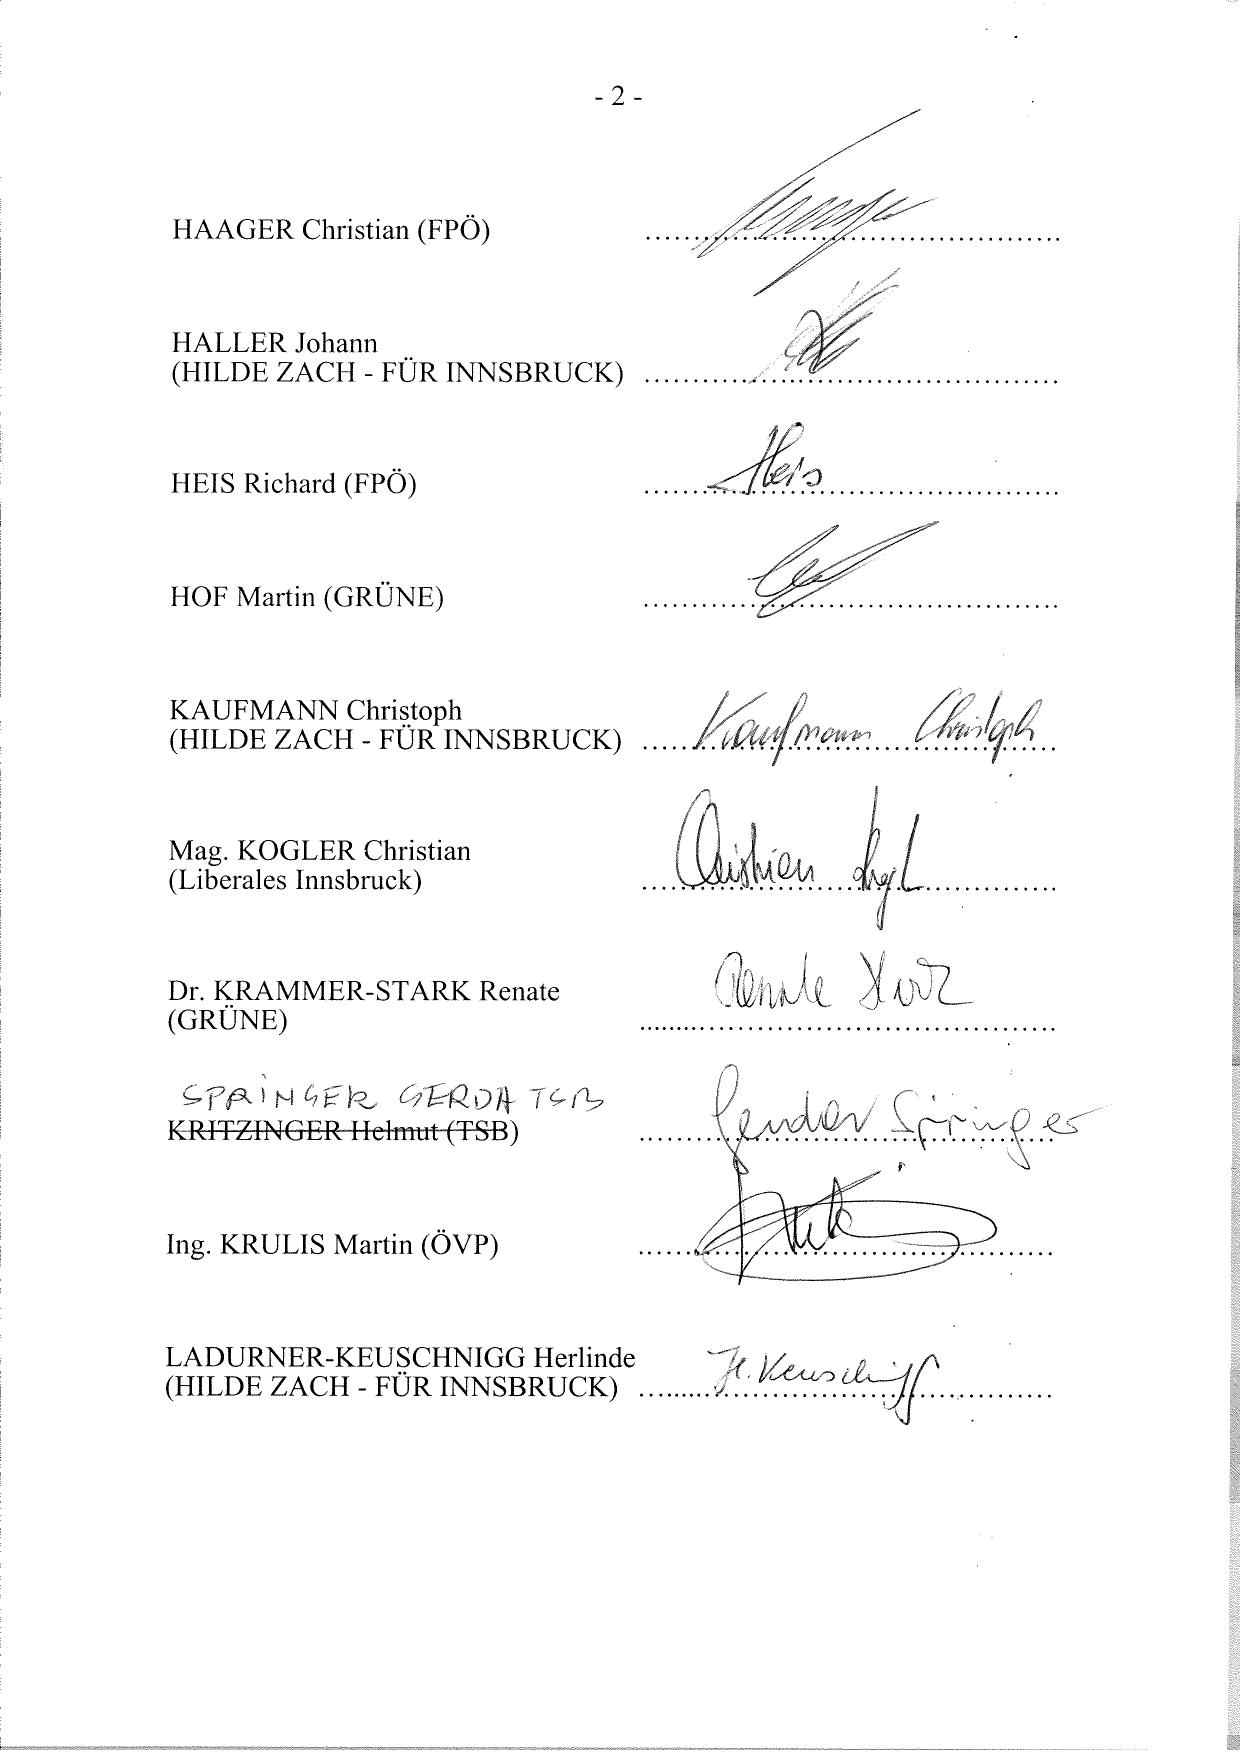 - 2 -
HAAGER Christian (FPÖ) ..........................................
HALLER Johann
(HILDE ZACH - FÜR INNSBRUCK) ..........................................
HEIS Richard (FPÖ) .......................................... Heis
HOF Martin (GRÜNE) ..........................................
KAUFMANN Christoph
(HILDE ZACH - FÜR INNSBRUCK) .......................................... Kaufmann Christoph
Mag. KOGLER Christian
(Liberales Innsbruck) .......................................... Christian
Dr. KRAMMER-STARK Renate Renate
(GRÜNE) ..........................................
SPRINGER GERDA TSB
KRITZINGER Helmut (TSB) .......................................... Springer
Ing. KRULIS Martin (ÖVP) ..........................................
LADURNER-KEUSCHNIGG Herlinde
(HILDE ZACH - FÜR INNSBRUCK) .......................................... H. Keuschnigg